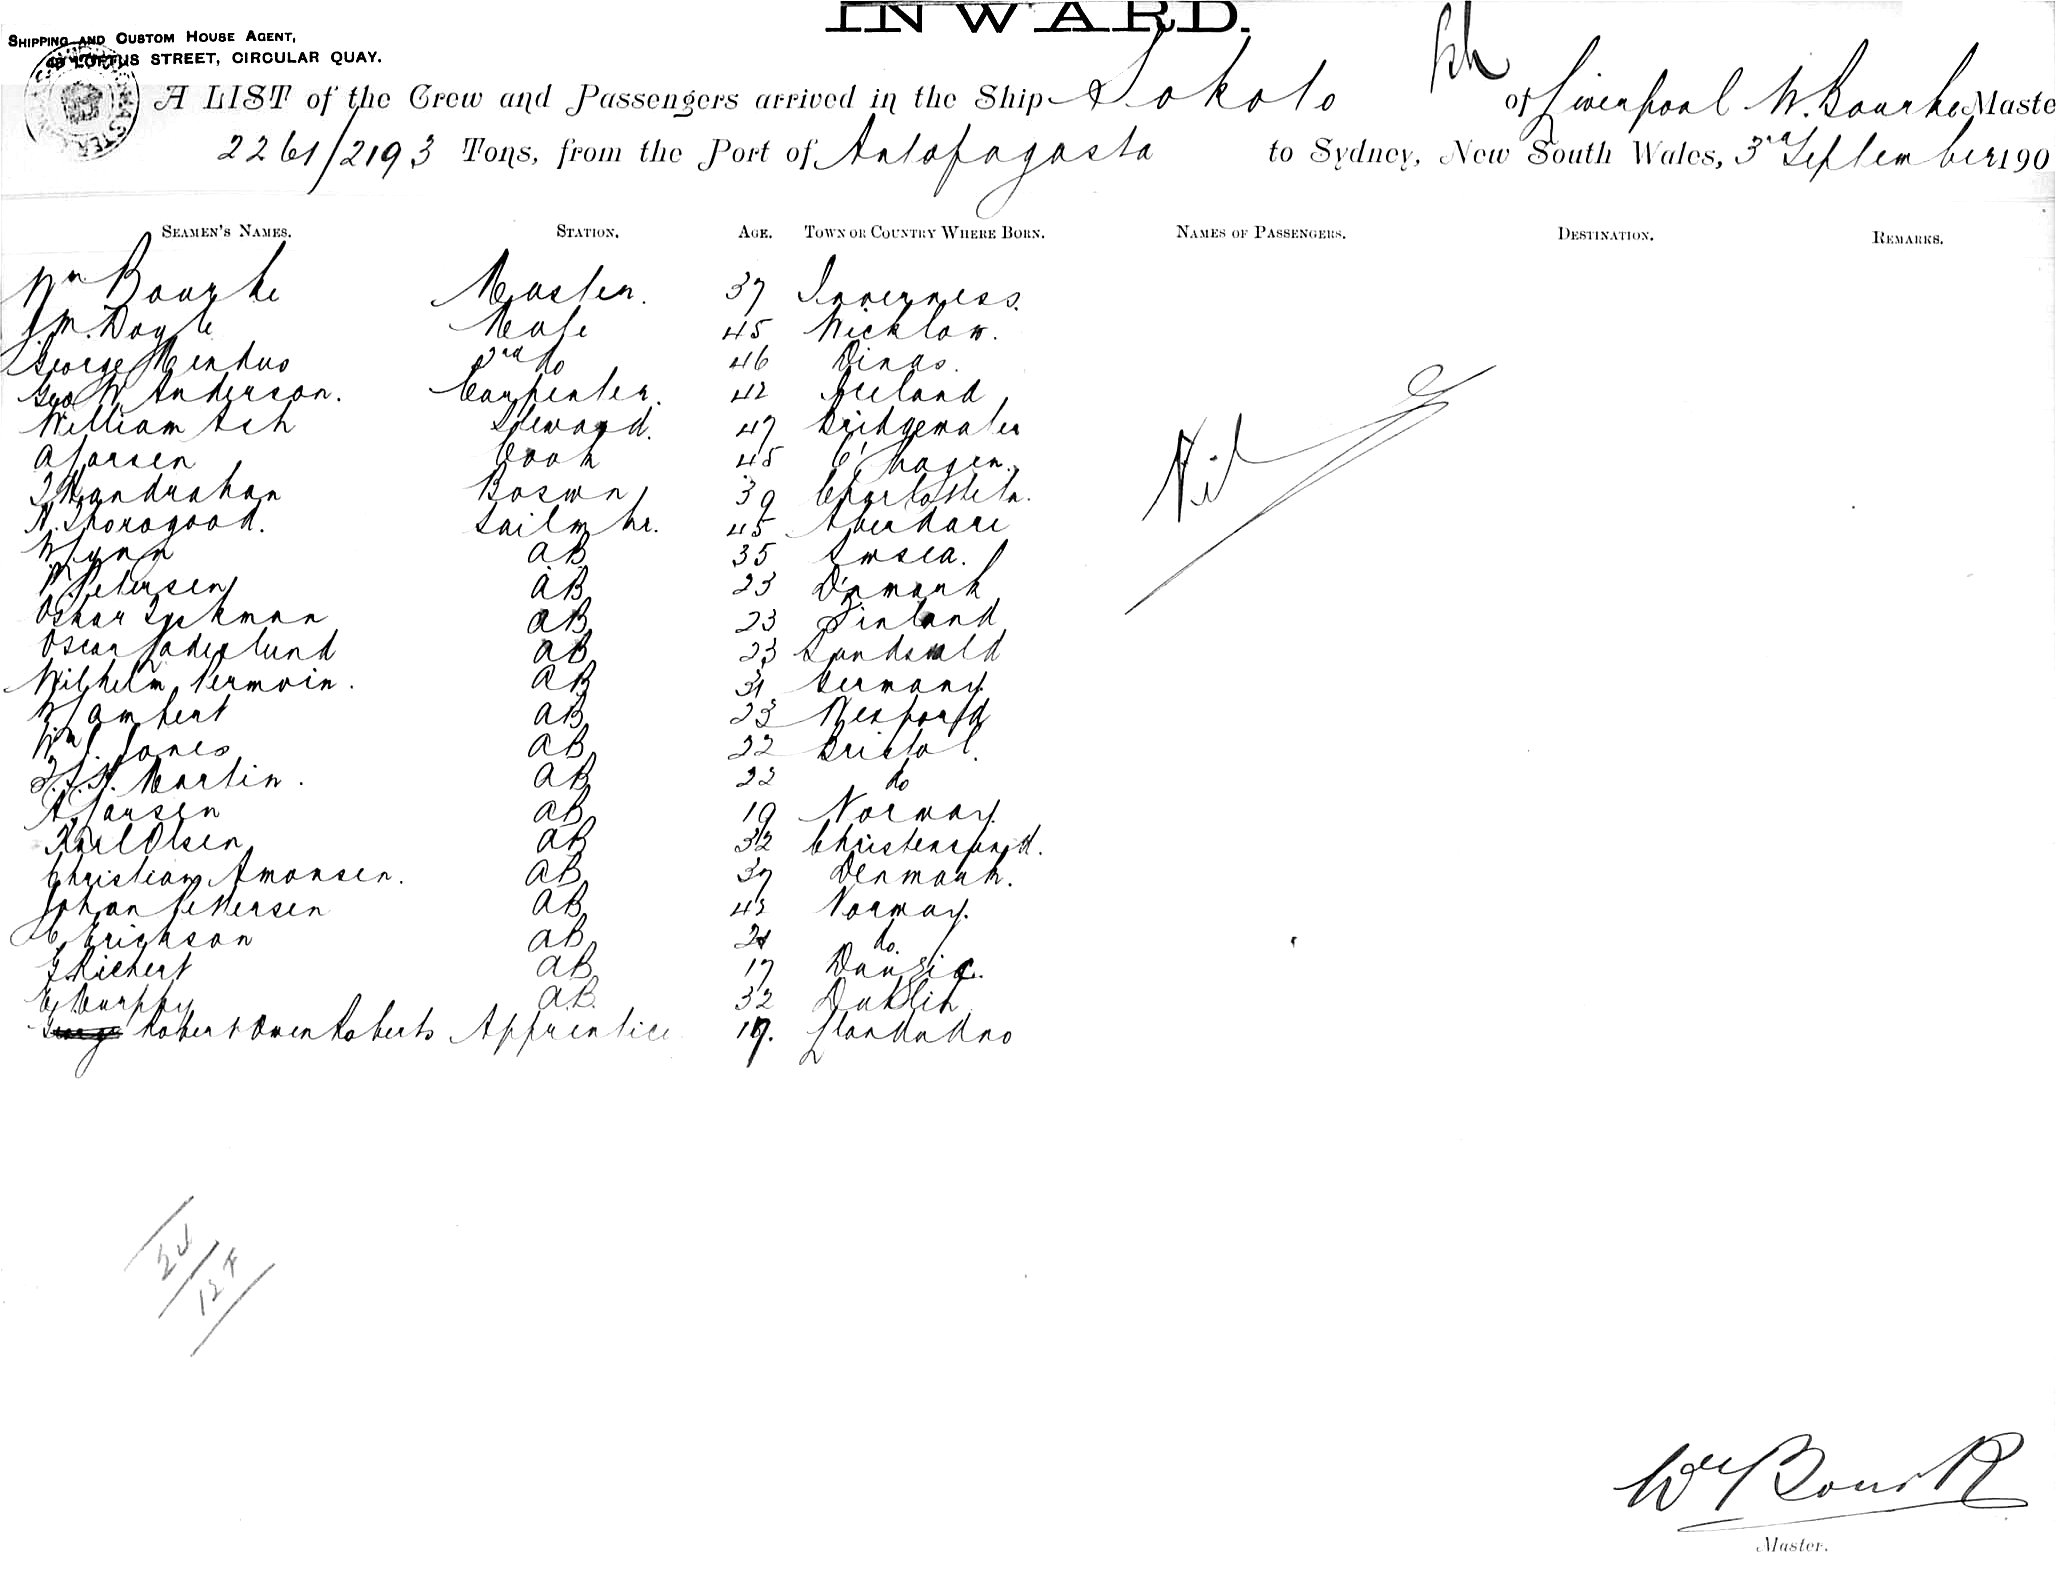 INWARD.
SHIPPING AND CUSTOM HOUSE AGENT,
LOFTUS STREET, CIRCULAR QUAY.
A LIST of the Crew and Passengers arrived in the Ship Sokoto of Liverpool W. Bourke Maste
2261/2193 Tons, from the Port of Antofagasta to Sydney, New South Wales, 3rd September 190
SEAMEN'S NAMES. STATION. AGE. TOWN OR COUNTRY WHERE BORN. NAMES OF PASSENGERS. DESTINATION. REMARKS.
Wm Bourke Master. 37 Inverness.
J. M. Doyle Mate 45 Wicklow.
George Mendus 2nd do 46 Dinas.
Geo W Anderson. Carpenter. 42 Iceland
William Ach Steward. 47 Bridgewater
A Larsen Cook 45 C'hagen.
J Handrahan Boswn 39 Charlotteten.
N. Thorogood. Sailmkr. 45 Aberdare
W Lynn AB 35 Swsea.
P. Petersen AB 23 Denmark
Oskar AB 23 Finland
Oscar Soderlund AB 23 Sundsvald
Wilhelm Permoin. AB 31 Germany.
W Lambert AB 23 Wexford
Wm J. Jones AB 22 Bristol.
Martin. AB 22 do
A Larsen AB 19 Norway.
Karl Olsen AB 32 Christensund.
Christian Amonsen. AB 37 Denmark.
Johan Pettersen AB 42 Norway.
C Erickson AB 21 do.
G Richert AB 17 Danzic.
E Murphy AB. 32 Dublin
George Robert Owen Roberts Apprentice 17. Llandudno
Nil
24
124
Wm Bourk
Master.